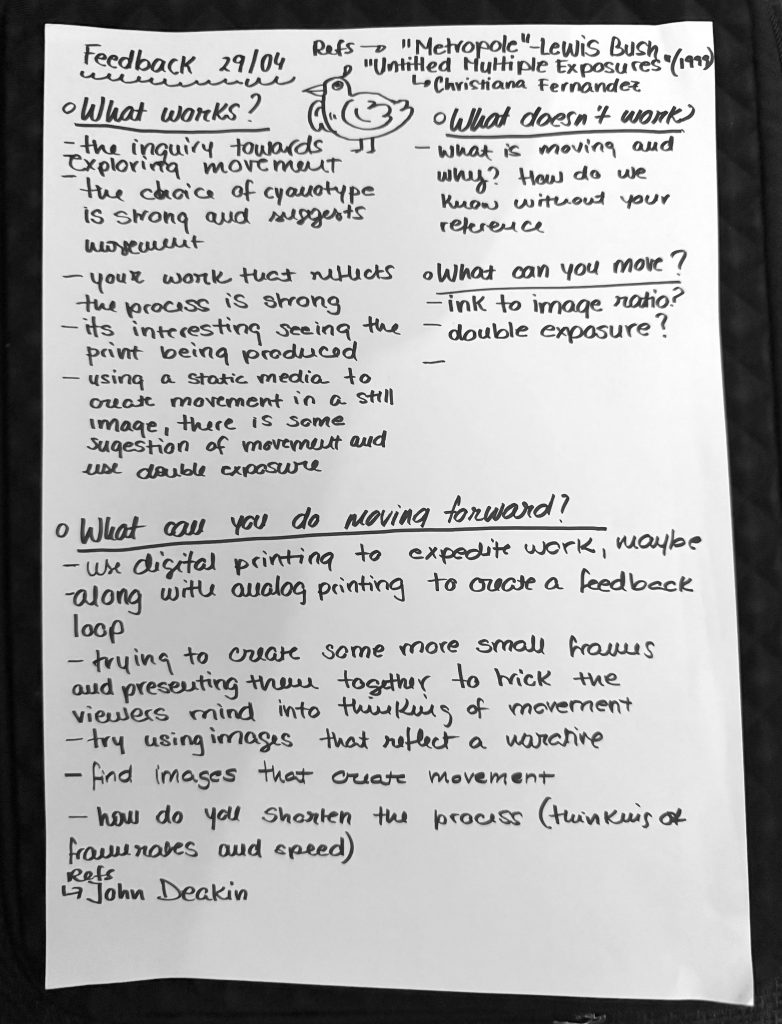 Feedback 29/04
Refs → "Metropole" - Lewis Bush
"Untitled Multiple Exposures" (1999)
↳ Christiana Fernandez
o What works?
- the inquiry towards
exploring movement
- the choice of cyanotype
is strong and suggests
movement
- your work that reflects
the process is strong
- its interesting seeing the
print being produced
- using a static media to
create movement in a still
image, there is some
sugestion of movement and
use double exposure
o What doesn't work?
- what is moving and
why? How do we
know without your
reference
o What can you move?
- ink to image ratio?
- double exposure?
-
o What can you do moving forward?
- use digital printing to expedite work, maybe
- along with analog printing to create a feedback
loop
- trying to create some more small frames
and presenting them together to trick the
viewers mind into thinking of movement
- try using images that reflect a narative
- find images that create movement
- how do you shorten the process (thinking of
framerates and speed)
Refs
↳ John Deakin